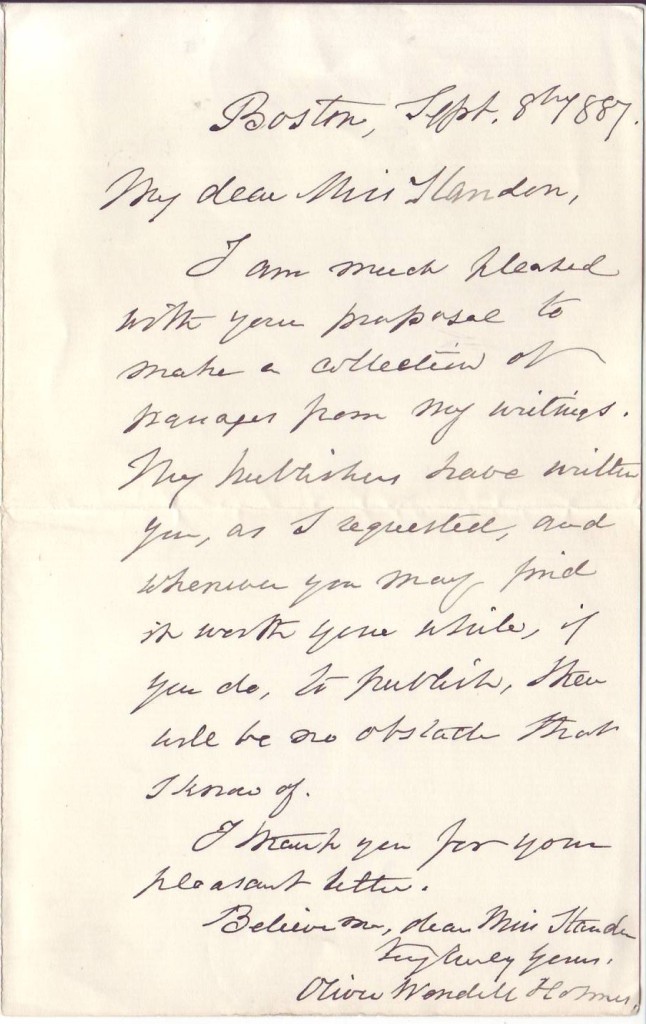 Boston, Sept. 8th 1887.
My dear Miss Standon,
I am much pleased
with your proposal to
make a collection of
passages from my writings.
My publishers have written
you, as I requested, and
whenever you may find
it worth your while, if
you do, to publish, there
will be no obstacle that
I know of.
I thank you for your
pleasant letter.
Believe me, dear Miss
Very truly yours,
Oliver Wendell Holmes.